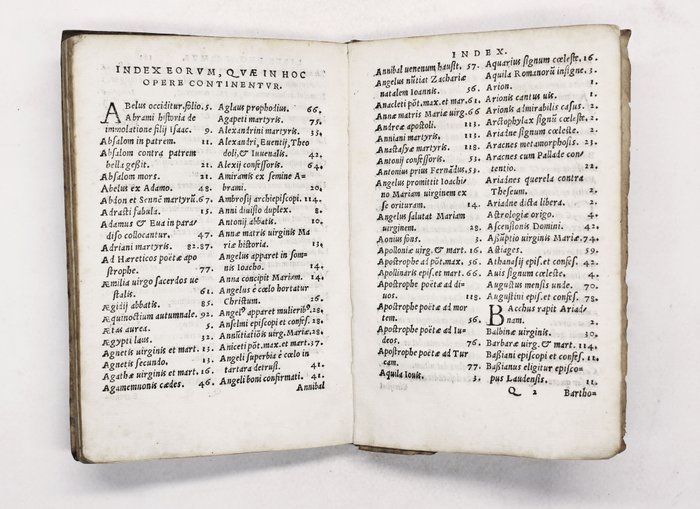 INDEX EORVM, QVÆ IN HOC
OPERE CONTINENTVR.
ABelus occiditur. folio. 5.
Abrami historia de
immolatione filij Isaac. 9.
Absalom in patrem. 11.
Absalom contra patrem
bella geßit. 21.
Absalom mors. 21.
Abelus ex Adamo. 48.
Abdon et Senne martyrū. 67.
Adrasti fabula. 15.
Adamus & Eua in para/
diso collocantur. 47.
Adriani martyris. 82.87.
Ad Hæreticos poëtæ apo
strophe. 77.
Æmilia uirgo sacerdos ue
stalis. 61.
Ægidij abbatis. 85.
Æquinoctium autumnale. 92.
Ætas aurea. 5.
Ægypti laus. 32.
Agnetis uirginis et mart. 13.
Agnetis secundo. 13.
Agathæ uirginis et mart. 16.
Agamemnonis cædes. 46.
Aglaus prophodius. 66.
Agapeti martyris. 75.
Alexandrini martyris. 33.
Alexandri, Euentij, Theo
doli, & Iuuenalis. 42.
Alexij confessoris. 64.
Amiramis ex semine A-
brami. 20.
Ambrosij archiepiscopi. 114.
Anni diuisio duplex. 8.
Antonij abbatis. 10.
Annæ matris uirginis Ma
riæ historia. 13.
Angelus apparet in som-
nis Ioacho. 14.
Anna concipit Mariam. 14.
Angelus è cœlo hortatur
Christum. 26.
Angelꝰ apparet mulieribꝰ. 28.
Anselmi episcopi et confes. 28.
Annūtiatiōis uirg. Mariæ. 28.
Aniceti pōt. max. et mart. 37.
Angeli superbia è cœlo in
tartara detrusi. 41.
Angeli boni confirmati. 41.
Annibal
INDEX.
Annibal uenenum hausit. 57.
Angelus nūtiat Zachariæ
natalem Ioannis. 56.
Anacleti pōt. max. et mar. 61.
Annæ matris Mariæ uirg. 66.
Andreæ apostoli. 113.
Anniani martyris. 113.
Anastasiæ martyris. 118.
Antonij confessoris. 53.
Antonius prius Fernādus. 53.
Angelus promittit Ioachi
no Mariam uirginem ex
se orituram. 14.
Angelus salutat Mariam
uirginem. 28.
Aonius fons. 3.
Apolloniæ uirg. & mart. 16.
Apostrophe ad pōt. max. 56.
Apollinaris epis. et mart. 66.
Apostrophe poëtæ ad di-
uos. 118.
Apostrophe poëtæ ad mor
tem. 56.
Apostrophe poëtæ ad Iu-
deos. 76.
Apostrophe poëtæ ad Tur
cam. 77.
Aquila Iouis. 3.
Aquarius signum cœleste. 16.
Aquila Romanorū insigne. 3.
Arion. 1.
Arionis cantus uis. 1.
Arionis admirabilis casus. 2.
Arctophylax signū cœleste. 4.
Ariadne signum cœleste. 4.
Aracnes metamorphosis. 23.
Aracnes cum Pallade con-
tentio. 22.
Ariadnes querela contra
Theseum. 2.
Ariadne dicta libera. 2.
Astrologiæ origo. 4.
Ascensionis Domini. 42.
Aßūptio uirginis Mariæ. 74.
Astiages. 59.
Athanasij epis. et confes. 42.
Auis signum cœleste. 4.
Augustus mensis unde. 70.
Augustini epis. et confes. 78.
BAcchus rapit Ariad-
nam. 2.
Balbinæ uirginis. 30.
Barbaræ uirg. & mart. 114.
Baßiani episcopi et confes. 11.
Baßianus eligitur episco-
pus Laudensis. 11.
Q 2
Bartho=